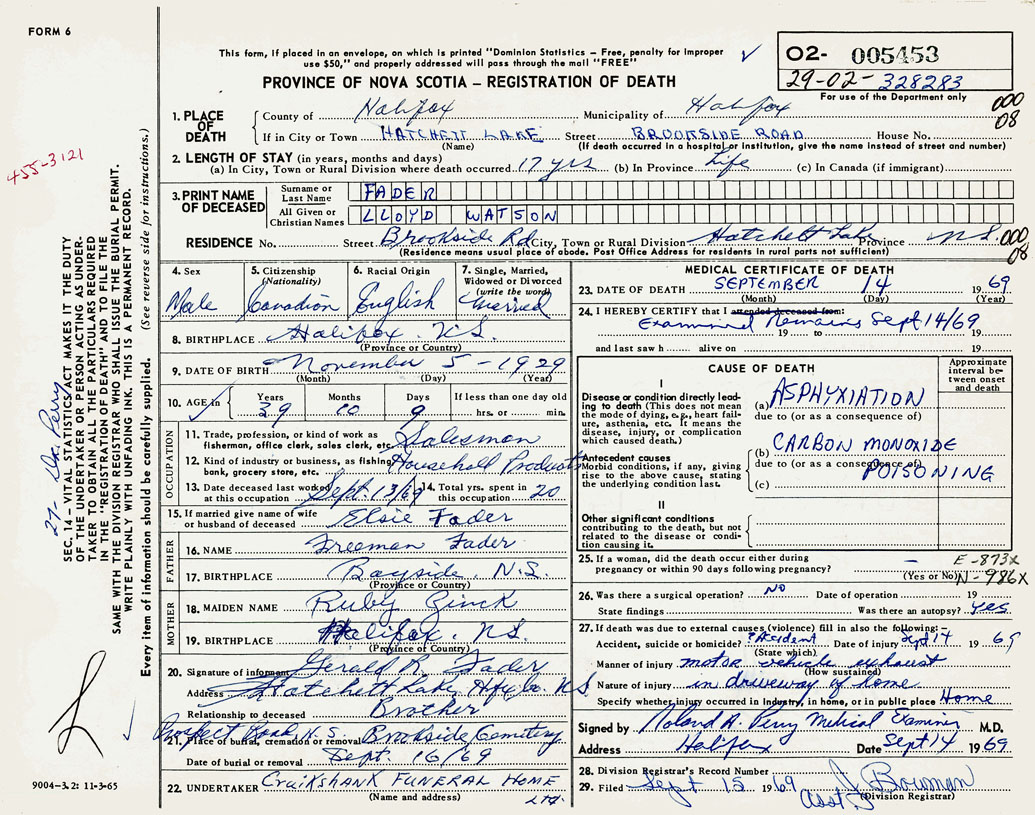 FORM 6
This form, if placed in an envelope, on which is printed "Dominion Statistics – Free, penalty for improper
use $50," and properly addressed will pass through the mail "FREE"
PROVINCE OF NOVA SCOTIA – REGISTRATION OF DEATH
02- 005453
29-02- 328283
For use of the Department only
000
08
455-3121
1. PLACE OF DEATH
County of Halifax Municipality of Halifax
If in City or Town HATCHETT LAKE Street BROOKSIDE ROAD House No.
(Name) (If death occurred in a hospital or institution, give the name instead of street and number)
2. LENGTH OF STAY (in years, months and days)
(a) In City, Town or Rural Division where death occurred 17 yrs (b) In Province Life (c) In Canada (if immigrant)
3. PRINT NAME OF DECEASED
Surname or Last Name FADER
All Given or Christian Names LLOYD WATSON
RESIDENCE No. Street Brookside Rd City, Town or Rural Division Hatchett Lake Province N.S.
000
08
(Residence means usual place of abode. Post Office Address for residents in rural parts not sufficient)
4. Sex Male
5. Citizenship (Nationality) Canadian
6. Racial Origin English
7. Single, Married, Widowed or Divorced (write the word) Married
8. BIRTHPLACE Halifax N.S.
(Province or Country)
9. DATE OF BIRTH November 5 - 1929
(Month) (Day) (Year)
10. AGE in Years 39 Months 10 Days 9 If less than one day old hrs. or min.
OCCUPATION
11. Trade, profession, or kind of work as fisherman, office, sales clerk, etc. Salesman
12. Kind of industry or business, as fishing, bank, grocery store, etc. Household Products
13. Date deceased last worked at this occupation Sept. 13/69
14. Total yrs. spent in this occupation 20
15. If married give name of wife or husband of deceased Elsie Fader
FATHER
16. NAME Freeman Fader
17. BIRTHPLACE Bayside, N.S.
(Province or Country)
MOTHER
18. MAIDEN NAME Ruby Zinck
19. BIRTHPLACE Halifax, N.S.
(Province of Country)
20. Signature of informant Gerald R. Fader
Address Hatchett Lake, Hfx Co. N.S
Relationship to deceased Brother
Prospect Road, N.S.
21. Place of burial, cremation or removal Brookside Cemetery
Date of burial or removal Sept. 16/69
22. UNDERTAKER Cruikshank FUNERAL HOME LTD.
(Name and address)
MEDICAL CERTIFICATE OF DEATH
23. DATE OF DEATH SEPTEMBER 14 1969
(Month) (Day) (Year)
24. I HEREBY CERTIFY that I attended deceased from:
Examined Remains Sept 14/69
19 to 19
and last saw h alive on 19
CAUSE OF DEATH
Approximate interval between onset and death
I
Disease or condition directly leading to death (This does not mean the mode of dying, e.g., heart failure, asthenia, etc. It means the disease, injury, or complication which caused death.)
(a) ASPHYXIATION
due to (or as a consequence of)
Antecedent causes
Morbid conditions, if any, giving rise to the above cause, stating the underlying condition last.
(b) CARBON MONOXIDE
due to (or as a consequence of)
POISONING
(c)
II
Other significant conditions
contributing to the death, but not related to the disease or condition causing it.
25. If a woman, did the death occur either during pregnancy or within 90 days following pregnancy? –
(Yes or No)
E-873x
N-986x
26. Was there a surgical operation? NO Date of operation 19
State findings Was there an autopsy? Yes
27. If death was due to external causes (violence) fill in also the following:—
Accident, suicide or homicide? ?Accident Date of injury Sept 14 1969
(State which)
Manner of injury motor vehicle exhaust
(How sustained)
Nature of injury in driveway of home
Specify whether injury occurred in industry, in home, or in public place Home
Signed by Roland A. Perry Medical Examiner M.D.
Address Halifax Date Sept 14 1969
28. Division Registrar's Record Number
29. Filed Sept 15 1969 J. Bowman
Asst.
(Division Registrar)
SEC. 14 – VITAL STATISTICS ACT MAKES IT THE DUTY
OF THE UNDERTAKER OR PERSON ACTING AS UNDER-
TAKER TO OBTAIN ALL THE PARTICULARS REQUIRED
IN THE "REGISTRATION OF DEATH" AND TO FILE THE
SAME WITH THE DIVISION REGISTRAR WHO SHALL ISSUE THE BURIAL PERMIT.
WRITE PLAINLY WITH UNFADING INK. THIS IS A PERMANENT RECORD.
Every item of information should be carefully supplied. (See reverse side for instructions.)
9004-3.2: 11-3-65